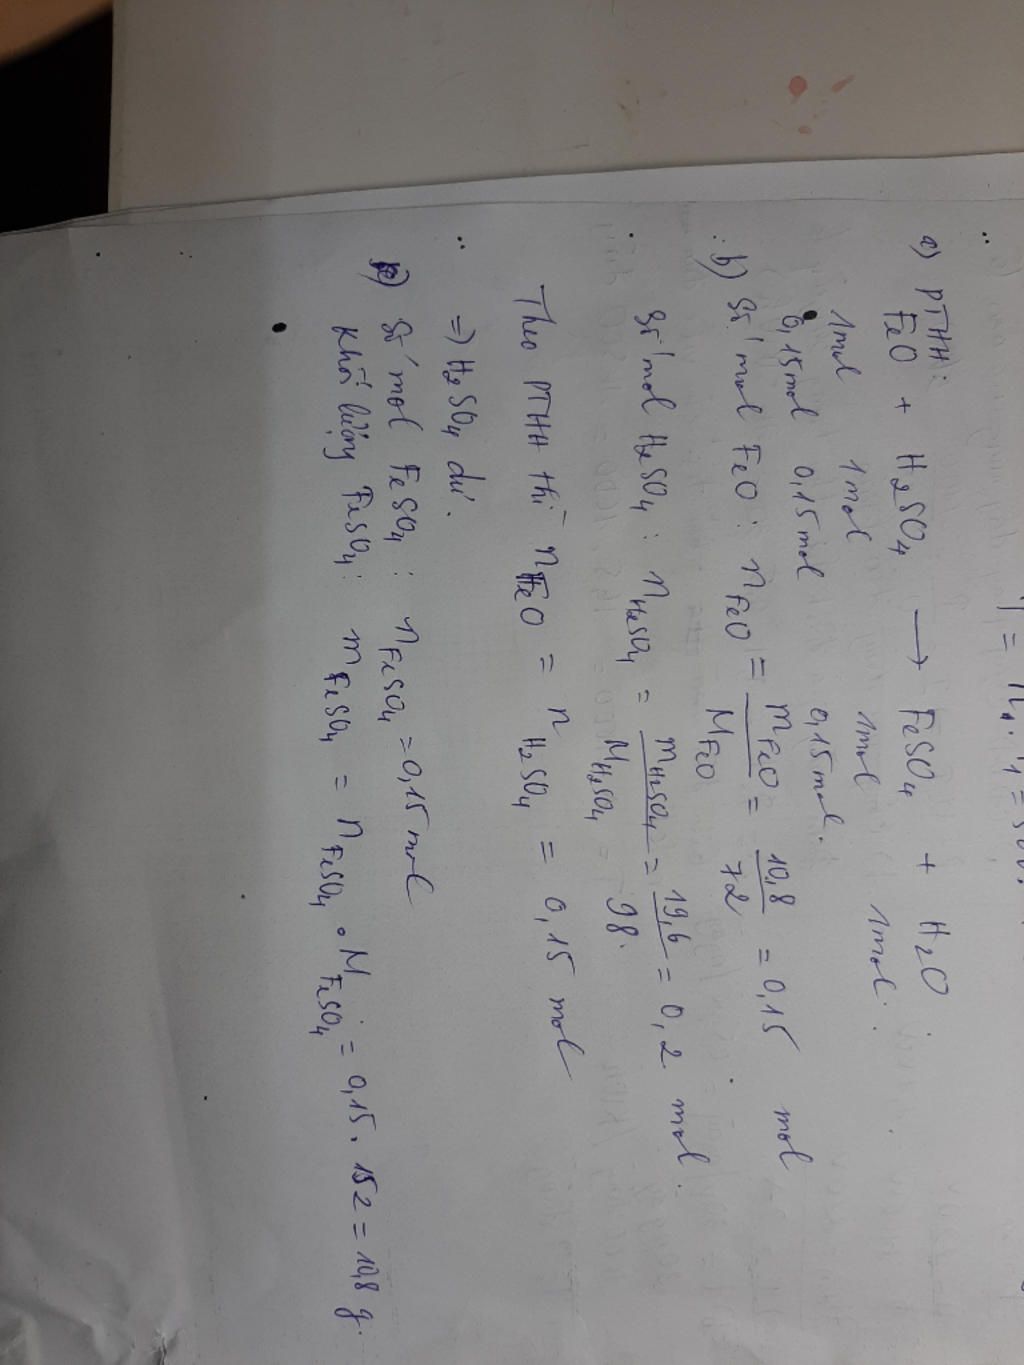 a) PTHH:
FeO + H2SO4 → FeSO4 + H2O
1mol 1mol 1mol 1mol.
0,15mol 0,15mol 0,15mol.
b) Số mol FeO: nFeO = mFeO/MFeO = 10,8/72 = 0,15 mol
Số mol H2SO4: nH2SO4 = mH2SO4/MH2SO4 = 19,6/98 = 0,2 mol.
Theo PTHH thì nFeO = nH2SO4 = 0,15 mol
=> H2SO4 dư.
c) Số mol FeSO4: nFeSO4 = 0,15 mol
Khối lượng FeSO4: mFeSO4 = nFeSO4 . MFeSO4 = 0,15. 152 = 10,8 g.